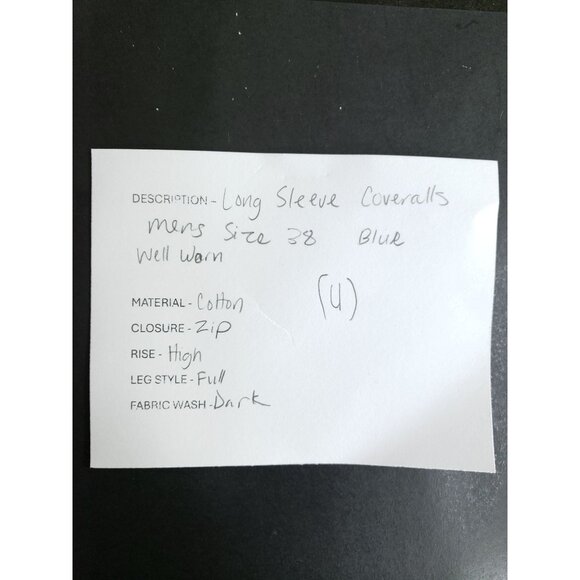 DESCRIPTION - Long Sleeve Coveralls
mens Size 38 Blue
Well Worn
MATERIAL - Cotton (U)
CLOSURE - Zip
RISE - High
LEG STYLE - Full
FABRIC WASH - Dark